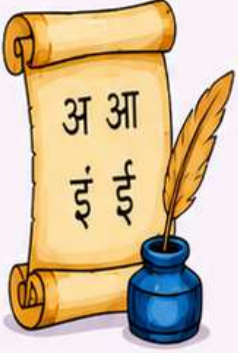 अ आ
इं ई